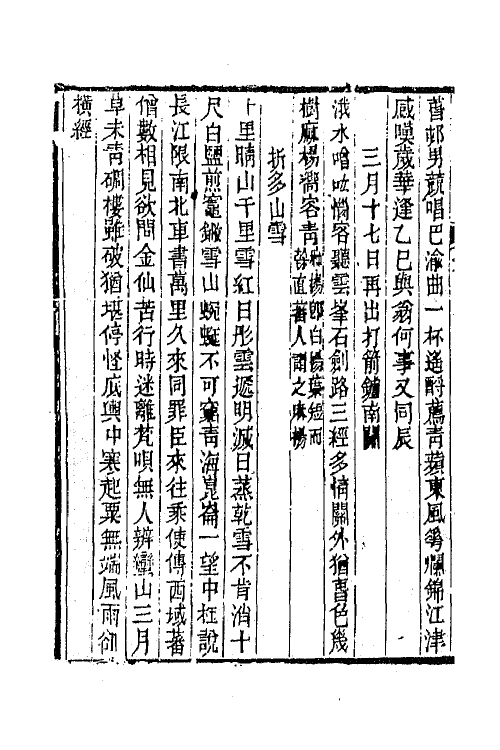 舊邨男競唱巴渝曲一杯遙酹薦靑蘋東風爛錦江津
感嘆歲華逢乙巳與翁何事又同辰
三月十七日再出打箭鑪南關
浪水噌吰惱客聽雲峯石劍路三經多情關外猶春色幾
樹麻楊向客靑麻楊卽白楊葉短而幹直蕃人謂之麻楊
折多山雪
十里晴山千里雪紅日彤雲遞明滅日蒸乾雪不肯消十
尺白鹽煎竈鍛雪山蜿蜒不可窮靑海崑崙一望中枉說
長江限南北車書萬里久來同罪臣來往乘使傳西域蕃
僧數相見欲問金仙苦行時迷離梵唄無人辨巒山三月
草未靑碉樓雖破猶堪停怪底輿中寒起粟無端風雨卻
橫經